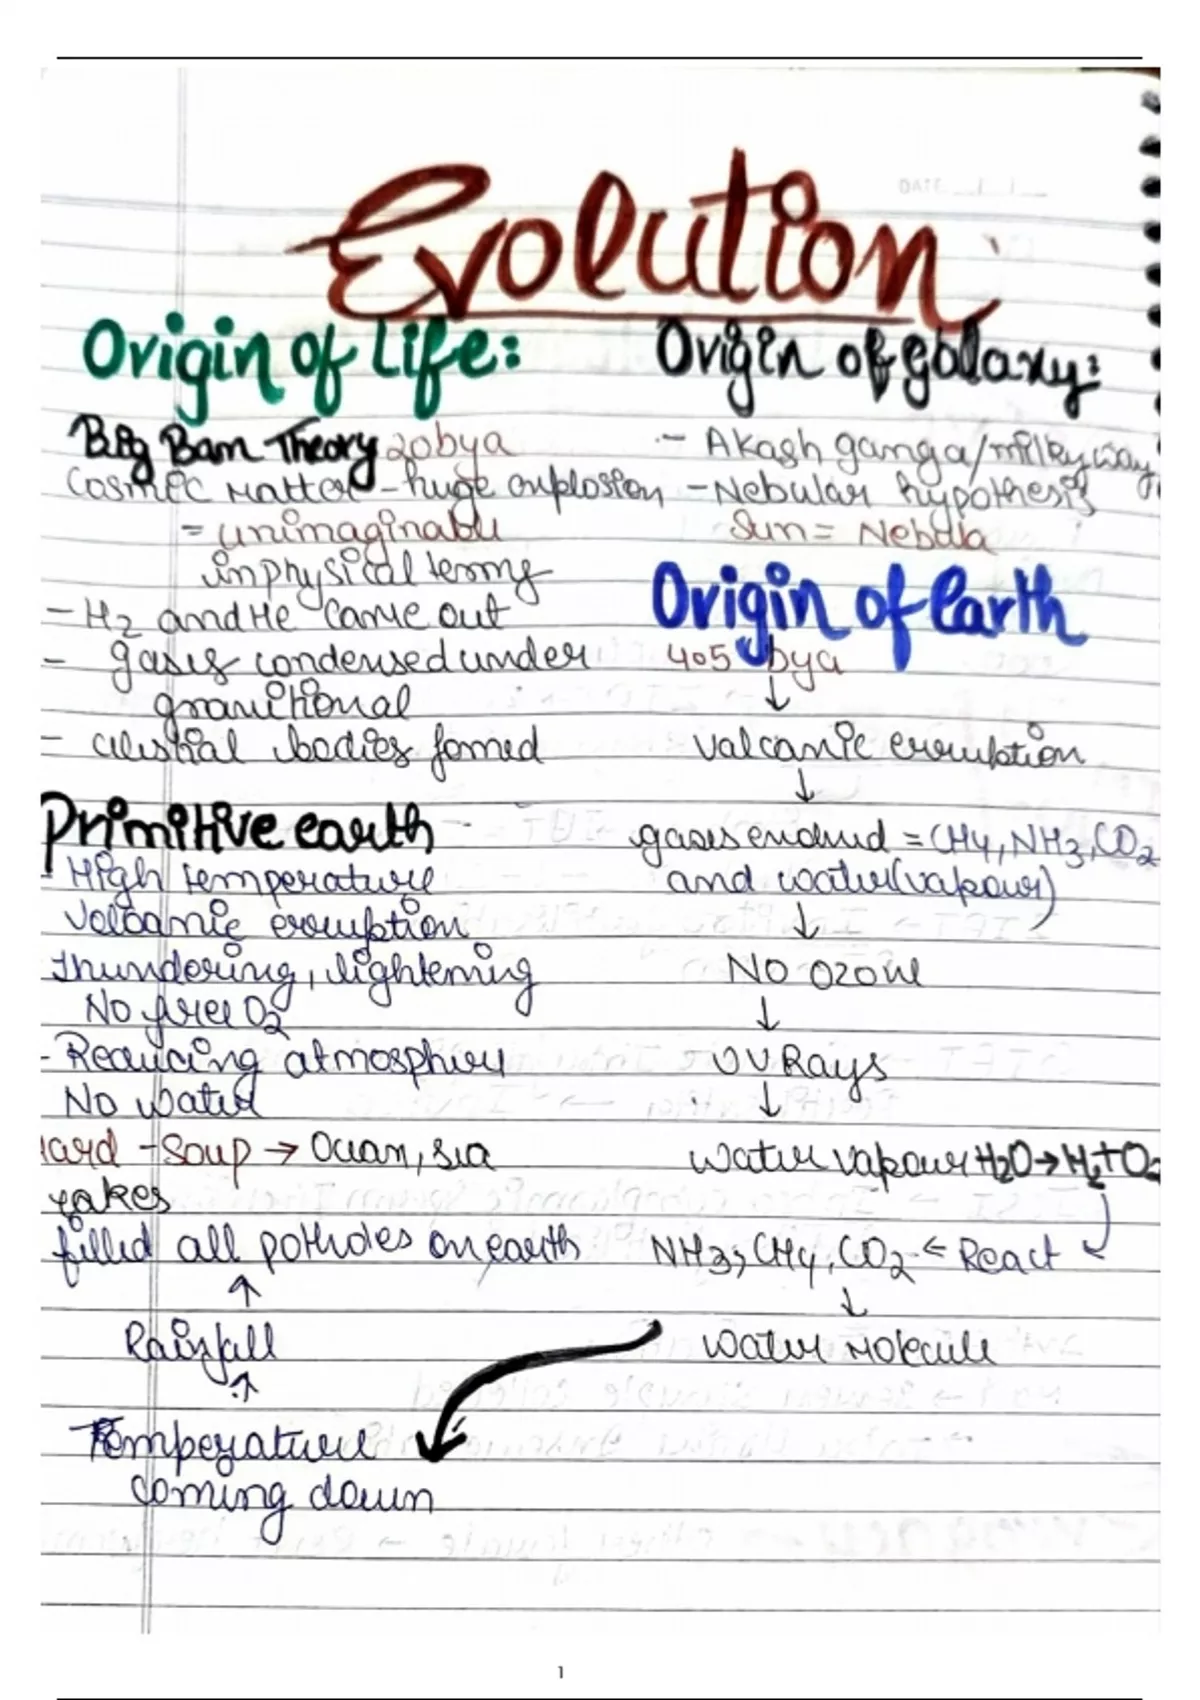 Evolution
Origin of Life:
Big Bam Theory 20bya
Cosmic Matter - huge explosion
= unimaginable
in physical terms
- H2 and He came out
- gases condensed under
gravitional
- celestial bodies fomed
Primitive earth
- High temperature
Volcanic erruption
thundering, lightening
No free O2
- Reducing atmosphere
No water
Hard - Soup → Ocean, sea
Lakes
filled all potholes on earth
↑
Rainfall
↑
Temperature
coming down
Origin of galaxy:
- Akash ganga/milky way
- Nebular hypothesis
Sun = Nebula
Origin of Earth
405 bya
↓
Valcanic erruption
↓
gases = CH4, NH3, CO2
and water(vapour)
↓
NO OZONE
↓
UV Rays
↓
Water vapour H2O → H2 + O2
NH3, CH4, CO2 ← React
↓
Water Molecule
1